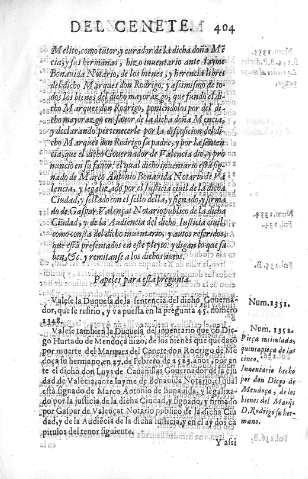 DEL CENETE. 404
Melito, como tutor, y curador de la dicha doña Mẽ
cia, y sus hermanas, hizo inuentario ante Iayme
Bonanida Notario, de los bienes, y herencia libres
del dicho Marques don Rodrigo: y assimismo de to
dos los bienes del dicho mayorazgo, que fundò el di
cho Marques don Rodrigo, poniendolos por del di-
cho mayorazgo en fauor de la dicha doña Mencia,
y declarando pertenecerle por la disposicion del dicho
Marques don Rodrigo su padre, y por la senten-
cia, que el dicho Gouernador de Valencia dio, y pro
nunciò en su fauor:
nado de Marco Antonio Bonanida Notario de Va-
lencia, y legalizado por el Iusticia ciuil de la dicha
Ciudad, y sellado con el sello della, y signado, y firma
do de Gaspar Valençat Notario publico de la dicha
Ciudad, y de la Audiencia del dicho Iusticia ciuil,
como consta del dicho inuentario, y autos referidos,
que està presentados en este pleyto: y digan lo que sa
ben, &c. y remitanse a los dichos autos.
Papeles para esta pregunta.
Valese la Duquesa de la sentencia del dicho Gouerna-
dor, que se refirio, y va puesta en la pregunta 45. numero
1348.
Num.1351.
Vale se tambien la Duquesa del inuentario que dõ Die
go Hurtado de Mendoça hizo, de los bienes que quedarõ
por muerte del Marques del Cenete don Rodrigo de Mẽ
doça su hermano, en 27. de Febrero de 1523. años,
te el dicho don Luys de Cauanillas Gouernador de la Ciu-
dad de Valencia, ante Iayme de Bonanida Notario, el qual
està signado de Marco Antonio de Bonanida, y legaliza-
do por la justicia de la dicha Ciudad, y signado, y firmado
por Gaspar de Valençat Notario publico de la dicha Ciu
dad, y de la Audiencia de la dicha justicia, y en el ay dos ca
pitulos del tenor siguiente.
Num.1352.
Pieça
quinta pieça de las
de
Inuentario hecho
por don Diego de
Mendoça, de los
bienes del Marq̃s
D. Rodrigo su her-
mano.
Y assi